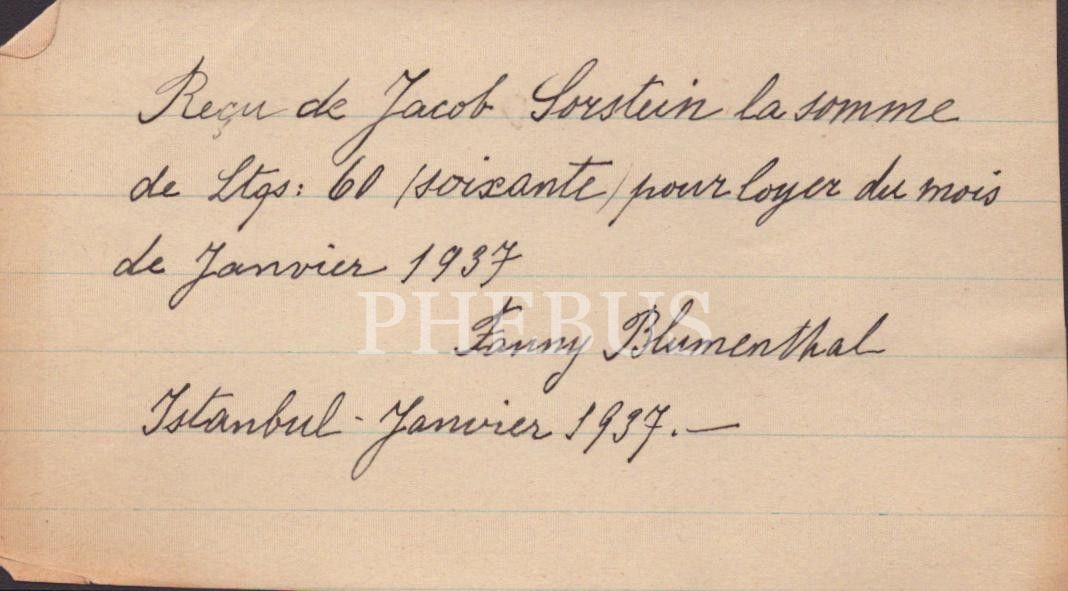 Reçu de Jacob Sorstein la somme
de Ltqs: 60 (soixante) pour loyer du mois
de Janvier 1937
PHEBUS
Fanny Blumenthal
Istanbul - Janvier 1937.—